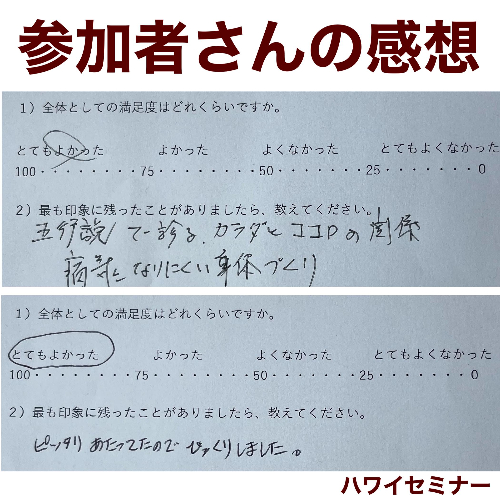 参加者さんの感想
1）全体としての満足度はどれくらいですか。
とてもよかった　よかった　よくなかった　とてもよくなかった
100・・・・・・・・75・・・・・・・・50・・・・・・・・25・・・・・・・・0
2）最も印象に残ったことがありましたら、教えてください。
五行説で診る、カラダとココロの関係
病気になりにくい身体づくり
1）全体としての満足度はどれくらいですか。
とてもよかった　よかった　よくなかった　とてもよくなかった
100・・・・・・・・75・・・・・・・・50・・・・・・・・25・・・・・・・・0
2）最も印象に残ったことがありましたら、教えてください。
ピッタリあたってたのでびっくりしました。
ハワイセミナー